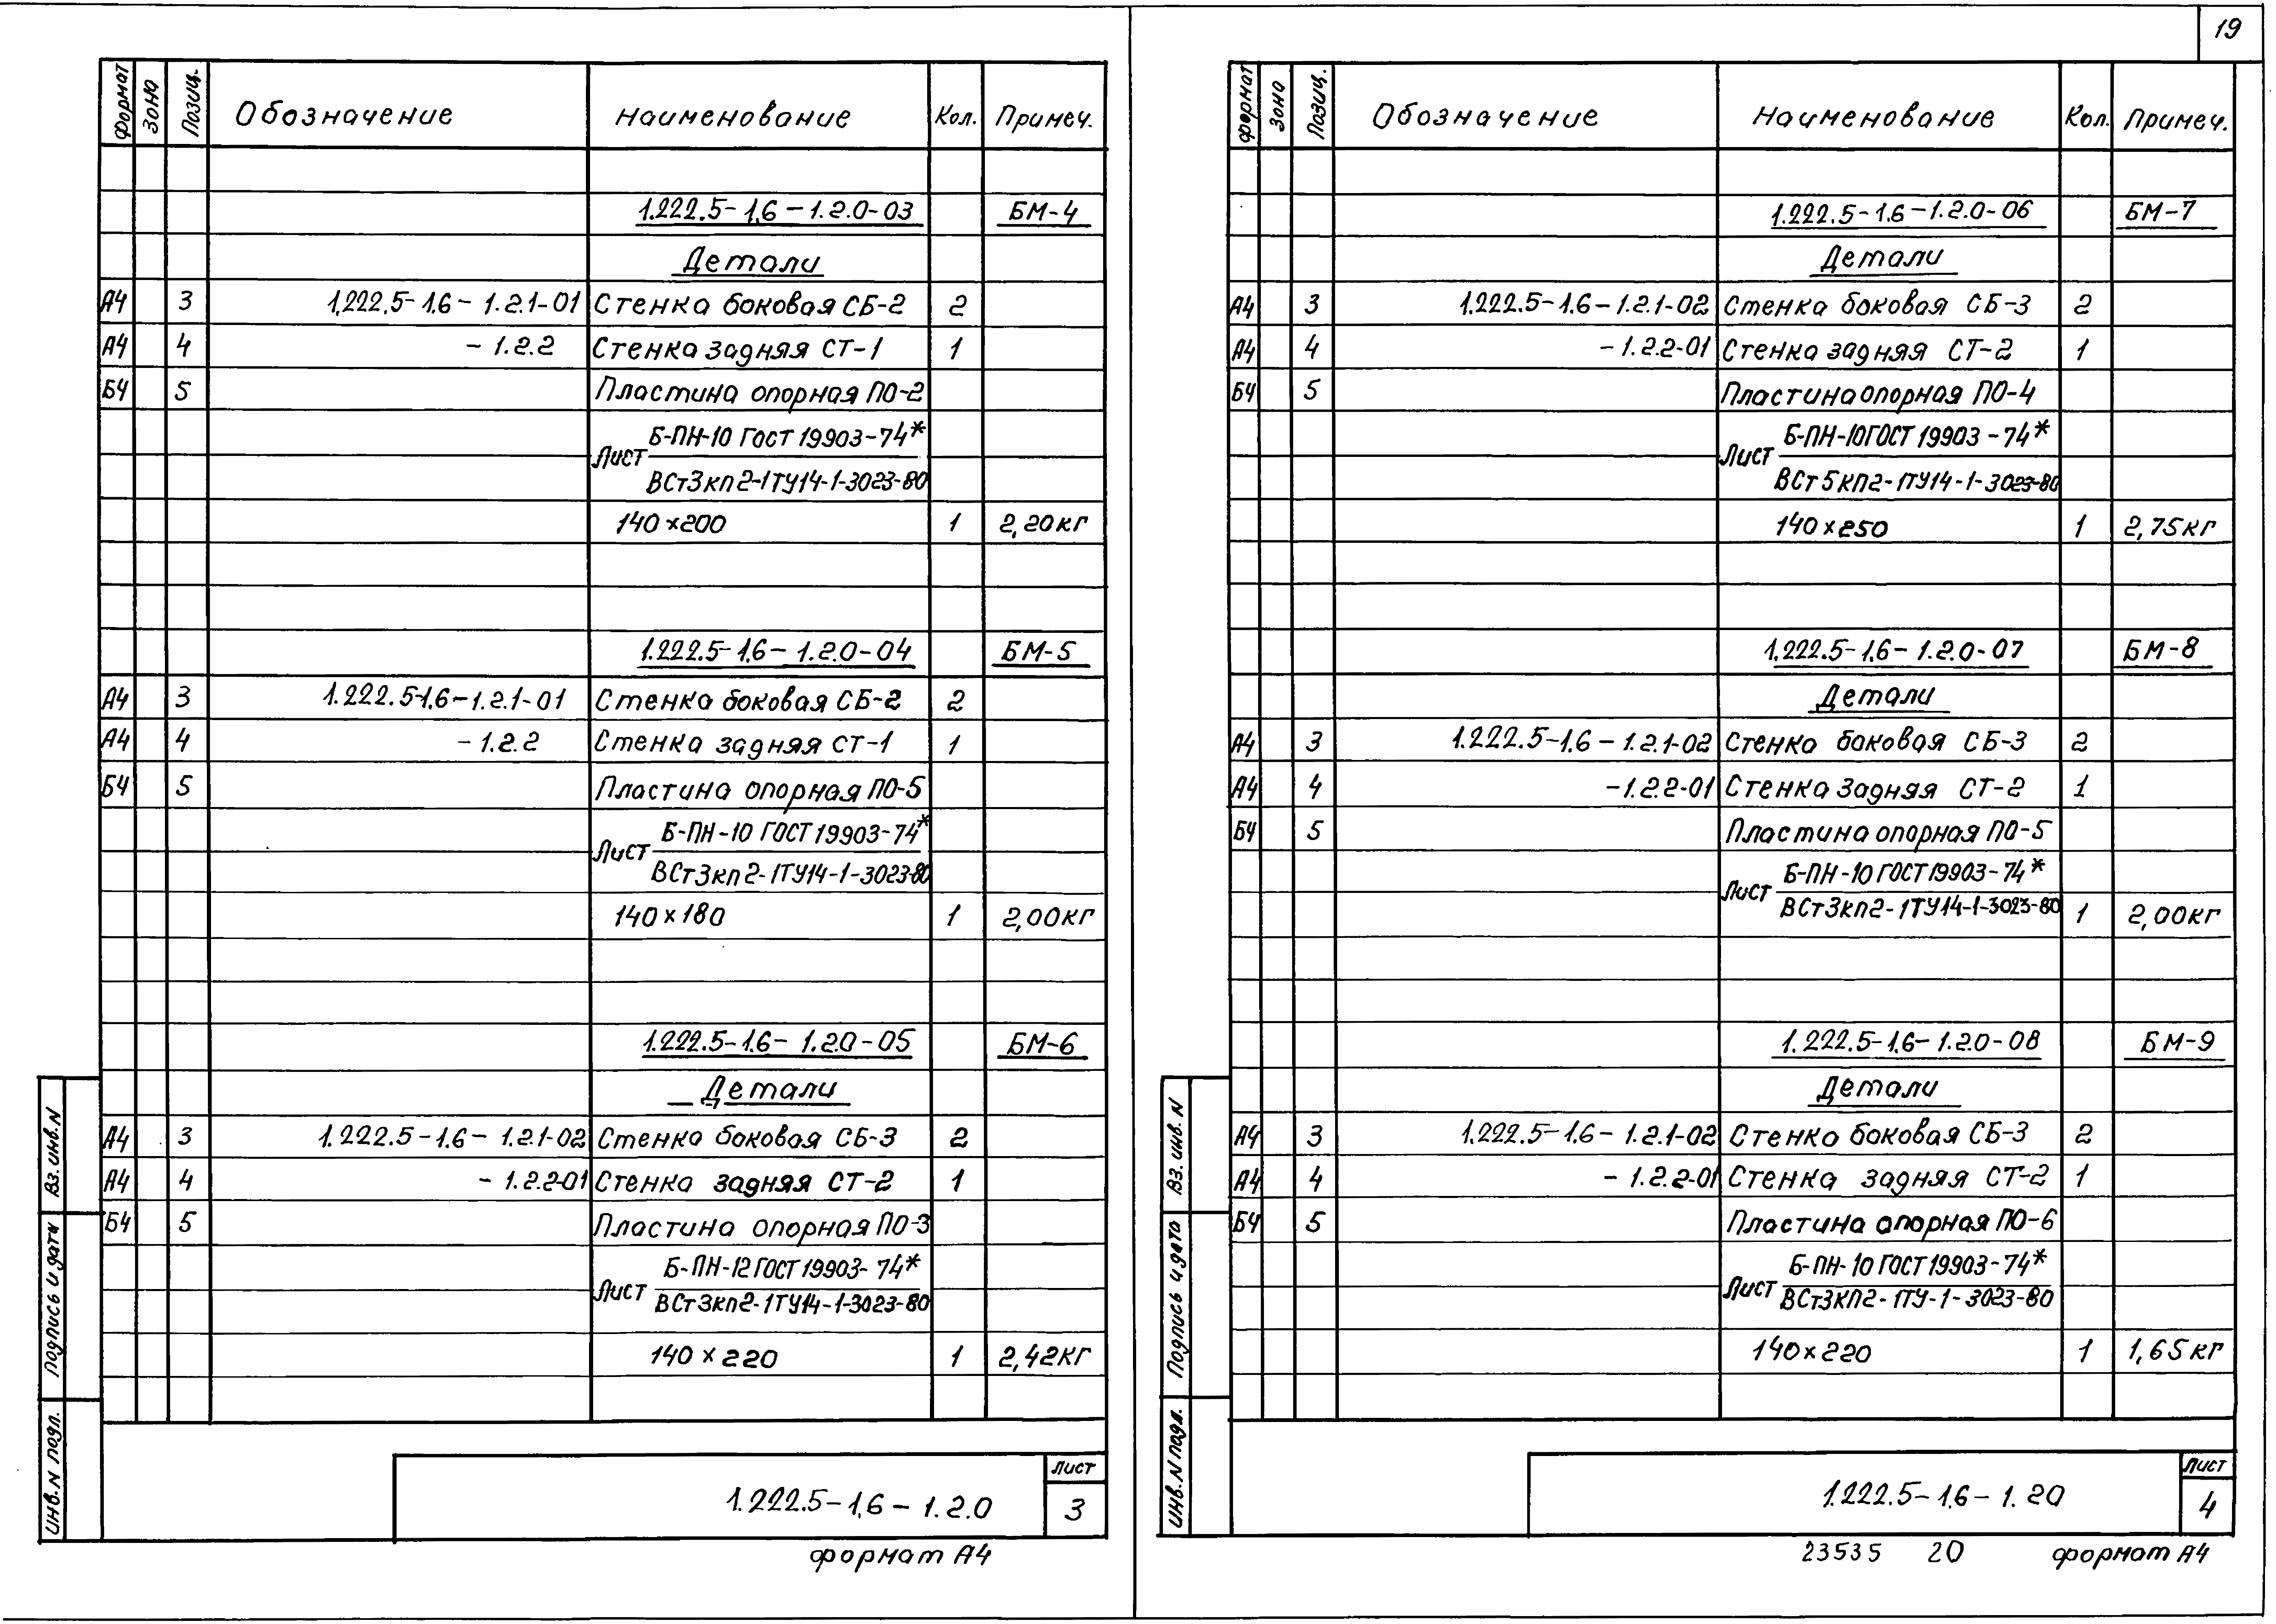 19
Формат Зона Позиц. Обозначение Наименование Кол. Примеч.
1.222.5-1.6-1.2.0-03 БМ-4
Детали
А4 3 1.222.5-1.6-1.2.1-01 Стенка боковая СБ-2 2
А4 4 -1.2.2 Стенка задняя СТ-1 1
Б4 5 Пластина опорная ПО-2
Б-ПН-10 ГОСТ 19903-74*
Лист
ВСт3кп2-1ТУ14-1-3023-80
140×200 1 2,20кг
1.222.5-1.6-1.2.0-04 БМ-5
А4 3 1.222.5-1.6-1.2.1-01 Стенка боковая СБ-2 2
А4 4 -1.2.2 Стенка задняя СТ-1 1
Б4 5 Пластина опорная ПО-5
Б-ПН-10 ГОСТ 19903-74*
Лист
ВСт3кп2-1ТУ14-1-3023-80
140×180 1 2,00кг
1.222.5-1.6-1.2.0-05 БМ-6
Детали
А4 3 1.222.5-1.6-1.2.1-02 Стенка боковая СБ-3 2
А4 4 -1.2.2-01 Стенка задняя СТ-2 1
Б4 5 Пластина опорная ПО-3
Б-ПН-12 ГОСТ 19903-74*
Лист
ВСт3кп2-1ТУ14-1-3023-80
140×220 1 2,42кг
Вз. инв. N
Подпись и дата
Инв. N подл.
1.222.5-1.6-1.2.0
Лист
3
формат А4
Формат Зона Позиц. Обозначение Наименование Кол. Примеч.
1.222.5-1.6-1.2.0-06 БМ-7
Детали
А4 3 1.222.5-1.6-1.2.1-02 Стенка боковая СБ-3 2
А4 4 -1.2.2-01 Стенка задняя СТ-2 1
Б4 5 Пластина опорная ПО-4
Б-ПН-10 ГОСТ 19903-74*
Лист
ВСт5кп2-1ТУ14-1-3023-80
140×250 1 2,75кг
1.222.5-1.6-1.2.0-07 БМ-8
Детали
А4 3 1.222.5-1.6-1.2.1-02 Стенка боковая СБ-3 2
А4 4 -1.2.2-01 Стенка задняя СТ-2 1
Б4 5 Пластина опорная ПО-5
Б-ПН-10 ГОСТ 19903-74*
Лист
ВСт3кп2-1ТУ14-1-3023-80 1 2,00кг
1.222.5-1.6-1.2.0-08 БМ-9
Детали
А4 3 1.222.5-1.6-1.2.1-02 Стенка боковая СБ-3 2
А4 4 -1.2.2-01 Стенка задняя СТ-2 1
Б4 5 Пластина опорная ПО-6
Б-ПН-10 ГОСТ 19903-74*
Лист
ВСт3кп2-1ТУ-1-3023-80
140×220 1 1,65кг
Вз. инв. N
Подпись и дата
Инв. N подл.
1.222.5-1.6-1.20
Лист
4
23535 20 формат А4